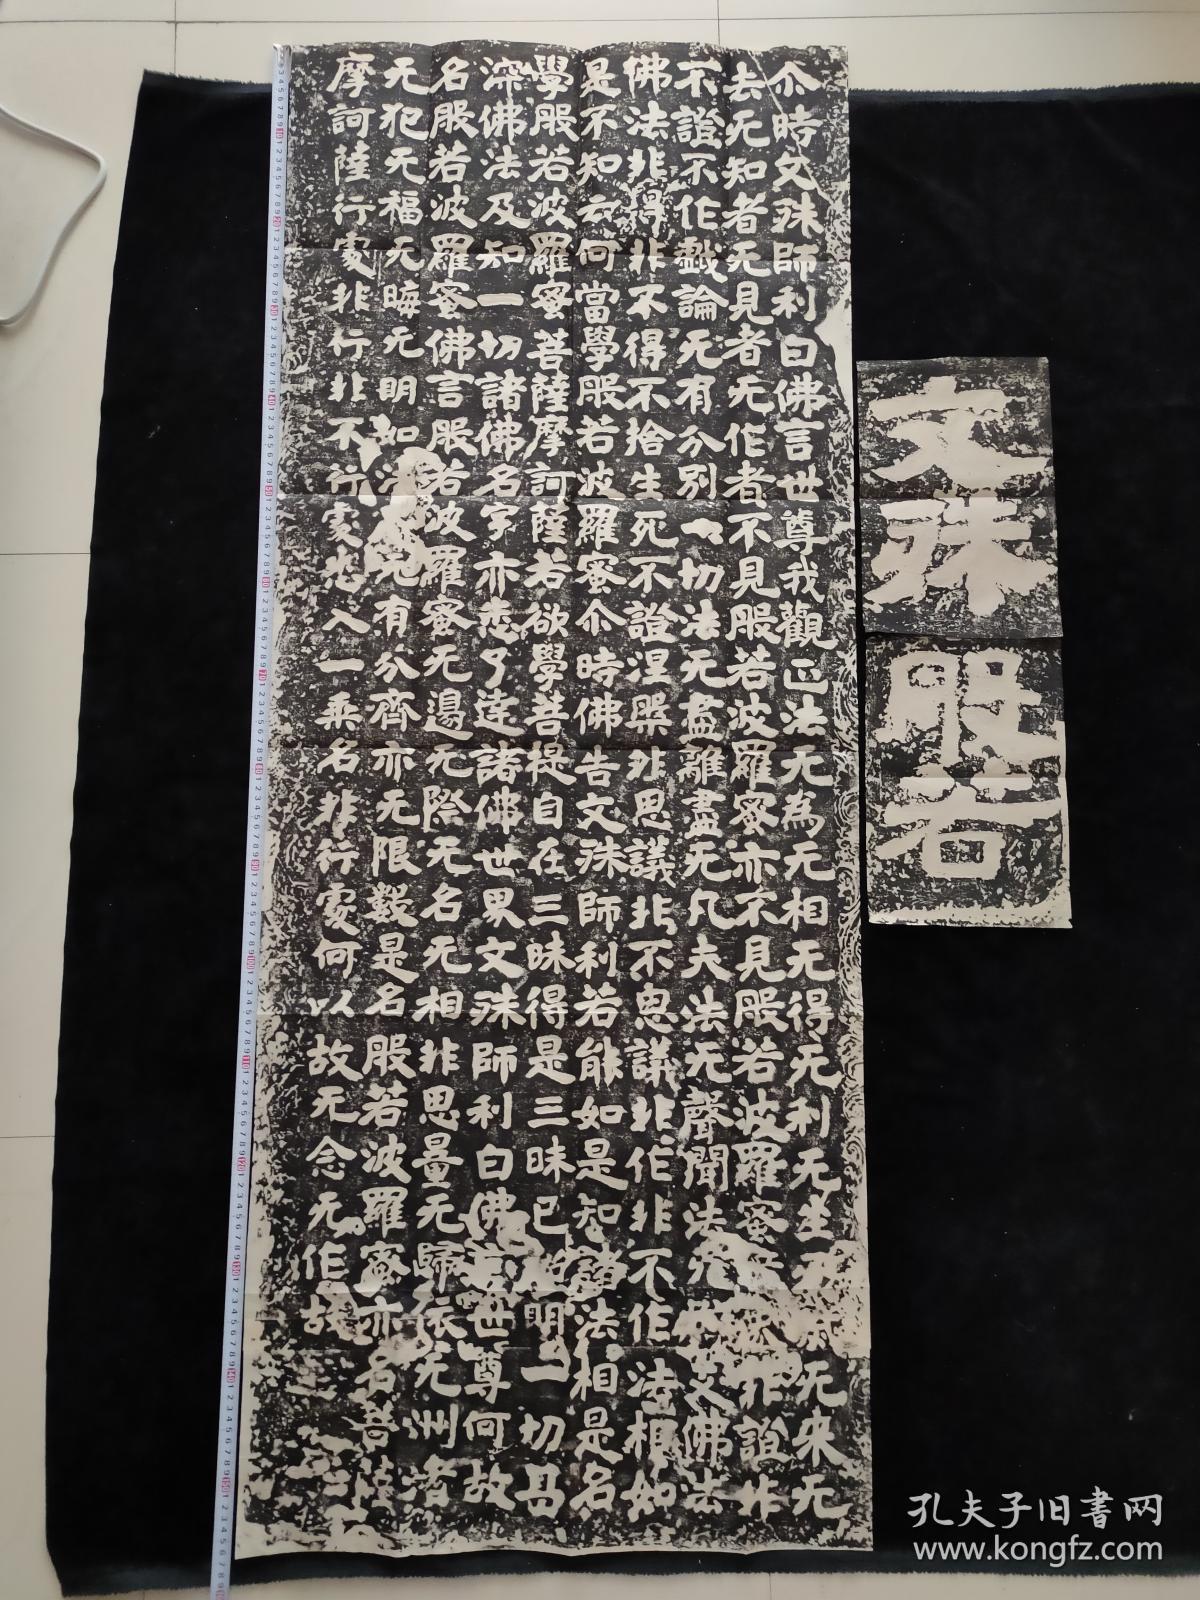 尒時文殊師利白佛言世尊我觀正法无為无相无得无利无生无來无
去无知者无見者无作者不見般若波羅蜜亦不見般若波羅蜜非證非
不證不作戲論无有分別一切法无盡離盡无凡夫法无聲聞法无支佛法
佛法非得非不得不捨生死不證涅槃非思議非不思議非作非不作法相如
是不知云何當學般若波羅蜜尒時佛告文殊師利若能如是知諸法相是名
學般若波羅蜜菩薩摩訶薩若欲學菩提自在三昧得是三昧已照明一切甚
深佛法及知一切諸佛名字亦悉了達諸佛世界文殊師利白佛言世尊何故
名般若波羅蜜佛言般若波羅蜜无邊无際无名无相非思量无歸依无洲渚
无犯无福无晦无明如法界有分齊亦无限數是名般若波羅蜜亦名菩薩
摩訶薩行處非行非不行處悉入一乘名非行處何以故无念无作故
文殊
般若
孔夫子旧書网
www.kongfz.com